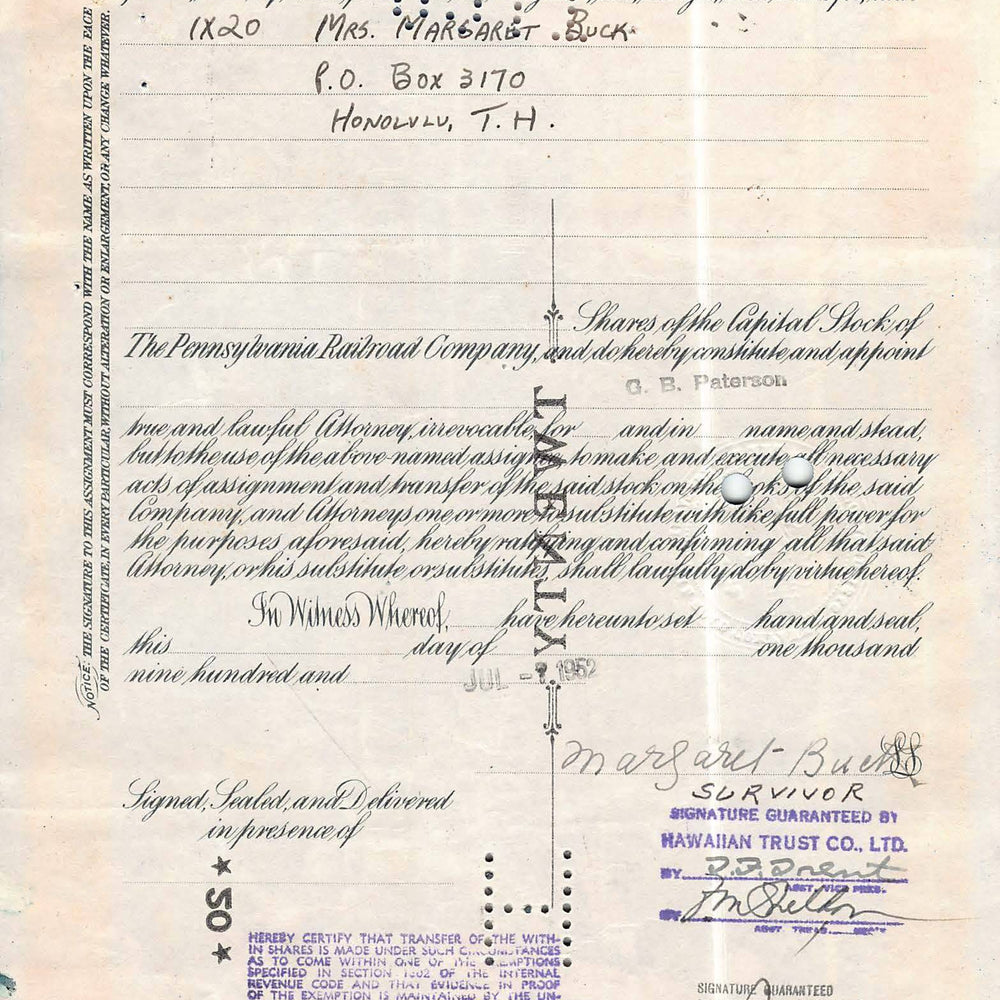 1X20 MRS. MARGARET BUCK
P.O. BOX 3170
HONOLULU, T.H.
NOTICE: THE SIGNATURE TO THIS ASSIGNMENT MUST CORRESPOND WITH THE NAME AS WRITTEN UPON THE FACE
OF THE CERTIFICATE, IN EVERY PARTICULAR, WITHOUT ALTERATION OR ENLARGEMENT, OR ANY CHANGE WHATEVER.
Shares of the Capital Stock of
The Pennsylvania Railroad Company, and do hereby constitute and appoint
G. B. Paterson
true and lawful Attorney, irrevocable, for and in name and stead,
but to the use of the above-named assignee to make, and execute, all necessary
acts of assignment and transfer of the said stock on the books of the said
Company, and Attorneys one or more, to substitute with like full power for
the purposes aforesaid, hereby ratifying and confirming all that said
Attorney, or his substitute, or substitutes, shall lawfully do by virtue hereof.
TWENTY
In Witness Whereof, have hereunto set hand and seal,
this day of one thousand
nine hundred and
JUL 1952
Margaret Buck LS
SURVIVOR
Signed, Sealed, and Delivered
in presence of
SIGNATURE GUARANTEED BY
HAWAIIAN TRUST CO., LTD.
BY
ASST. VICE PRES.
BY
ASST. TREAS. SEC'Y
★ 50 ★
HEREBY CERTIFY THAT TRANSFER OF THE WITH-
IN SHARES IS MADE UNDER SUCH CIRCUMSTANCES
AS TO COME WITHIN ONE OF THE EXEMPTIONS
SPECIFIED IN SECTION 1802 OF THE INTERNAL
REVENUE CODE AND THAT EVIDENCE IN PROOF
OF THE EXEMPTION IS MAINTAINED BY THE UN-
SIGNATURE GUARANTEED